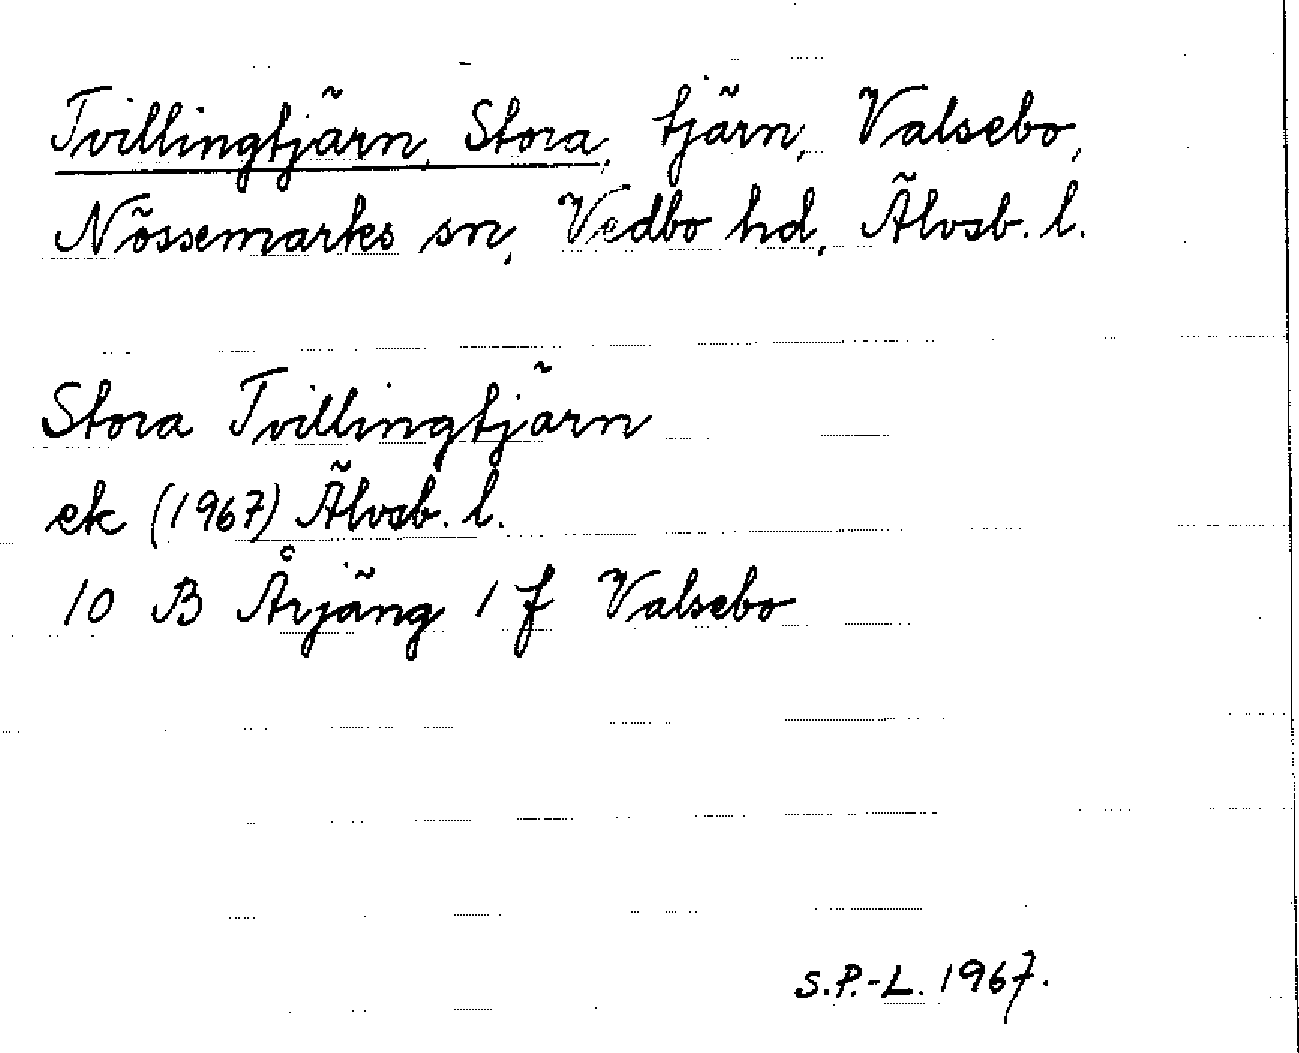 Tvillingtjärn, Stora, tjärn, Valsebo,
Nössemarks sn, Vedbo hd, Älvsb. l.
Stora Tvillingtjärn
ek (1967) Älvsb. l.
10 B Årjäng 1 f Valsebo
S.P.-L. 1967.